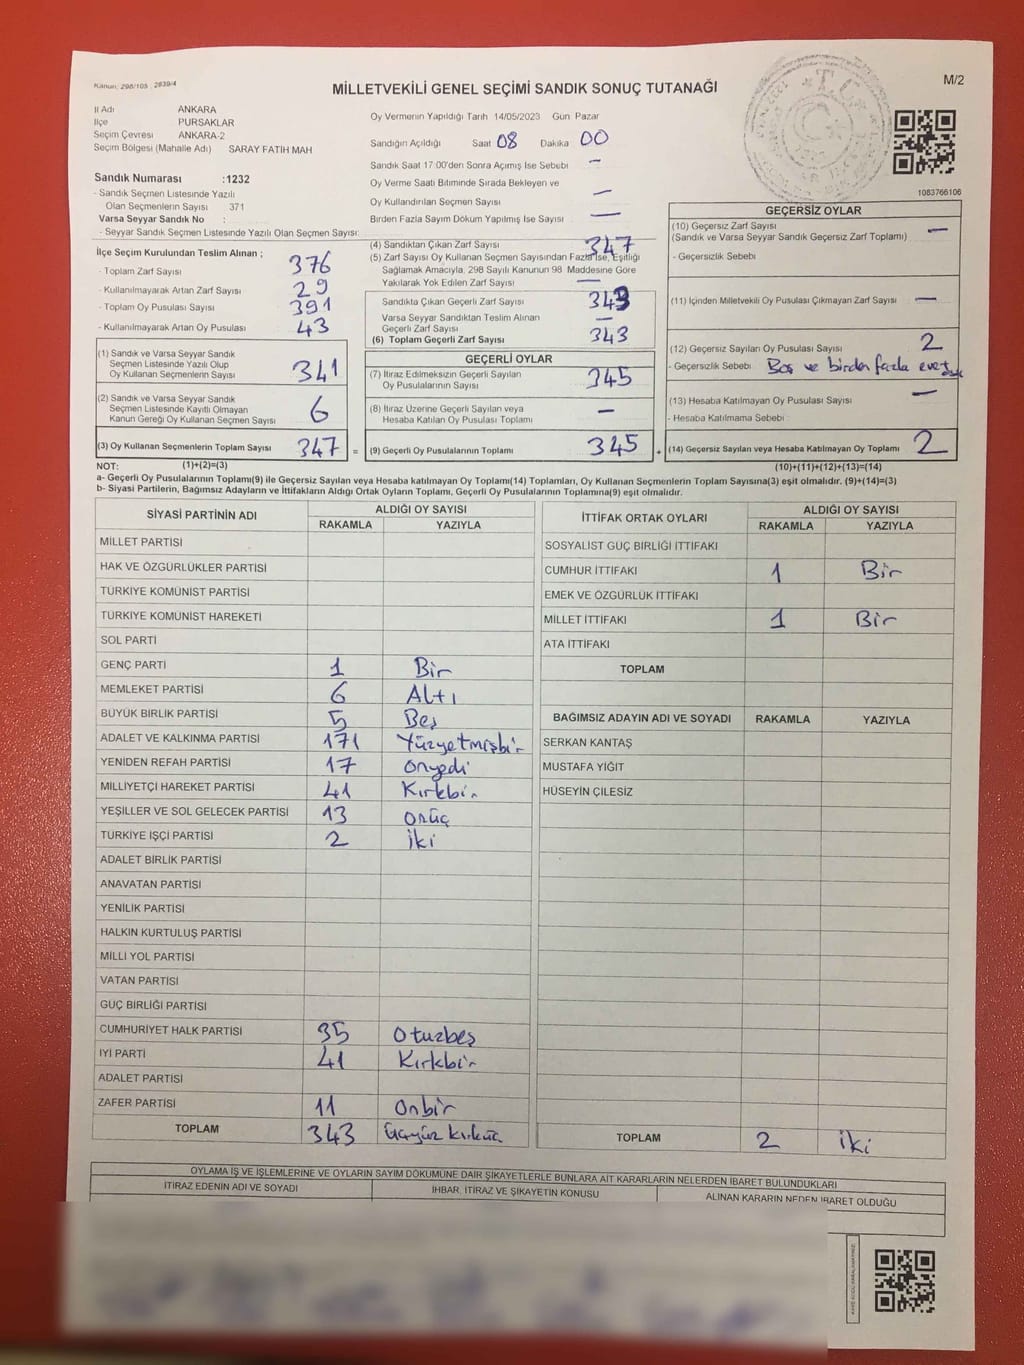 Kanun: 298/105 , 2839/4
MİLLETVEKİLİ GENEL SEÇİMİ SANDIK SONUÇ TUTANAĞI
M/2
İl Adı ANKARA
İlçe PURSAKLAR
Seçim Çevresi ANKARA-2
Seçim Bölgesi (Mahalle Adı) SARAY FATİH MAH
Oy Vermenin Yapıldığı Tarih 14/05/2023 Gün Pazar
Sandığın Açıldığı Saat 08 Dakika 00
Sandık Saat 17:00'den Sonra Açılmış İse Sebebi —
Oy Verme Saati Bitiminde Sırada Bekleyen ve
Oy Kullandırılan Seçmen Sayısı —
Birden Fazla Sayım Döküm Yapılmış İse Sayısı —
1083766106
Sandık Numarası :1232
- Sandık Seçmen Listesinde Yazılı
Olan Seçmenlerin Sayısı 371
Varsa Seyyar Sandık No :
- Seyyar Sandık Seçmen Listesinde Yazılı Olan Seçmen Sayısı:
İlçe Seçim Kurulundan Teslim Alınan ;
- Toplam Zarf Sayısı 376
- Kullanılmayarak Artan Zarf Sayısı 29
- Toplam Oy Pusulası Sayısı 391
- Kullanılmayarak Artan Oy Pusulası 43
(1) Sandık ve Varsa Seyyar Sandık
Seçmen Listesinde Yazılı Olup
Oy Kullanan Seçmenlerin Sayısı 341
(2) Sandık ve Varsa Seyyar Sandık
Seçmen Listesinde Kayıtlı Olmayan
Kanun Gereği Oy Kullanan Seçmen Sayısı 6
(3) Oy Kullanan Seçmenlerin Toplam Sayısı 347 =
(4) Sandıktan Çıkan Zarf Sayısı 347
(5) Zarf Sayısı Oy Kullanan Seçmen Sayısından Fazla İse, Eşitliği
Sağlamak Amacıyla, 298 Sayılı Kanunun 98 Maddesine Göre
Yakılarak Yok Edilen Zarf Sayısı —
Sandıkta Çıkan Geçerli Zarf Sayısı 343
Varsa Seyyar Sandıktan Teslim Alınan
Geçerli Zarf Sayısı —
(6) Toplam Geçerli Zarf Sayısı 343
GEÇERLİ OYLAR
(7) İtiraz Edilmeksizin Geçerli Sayılan
Oy Pusulalarının Sayısı 345
(8) İtiraz Üzerine Geçerli Sayılan veya
Hesaba Katılan Oy Pusulası Toplamı —
(9) Geçerli Oy Pusulalarının Toplamı 345 +
GEÇERSİZ OYLAR
(10) Geçersiz Zarf Sayısı
(Sandık ve Varsa Seyyar Sandık Geçersiz Zarf Toplamı) —
- Geçersizlik Sebebi
(11) İçinden Milletvekili Oy Pusulası Çıkmayan Zarf Sayısı —
(12) Geçersiz Sayılan Oy Pusulası Sayısı 2
- Geçersizlik Sebebi Boş ve birden fazla evet
(13) Hesaba Katılmayan Oy Pusulası Sayısı —
- Hesaba Katılmama Sebebi
(14) Geçersiz Sayılan veya Hesaba Katılmayan Oy Toplamı 2
NOT: (1)+(2)=(3) (10)+(11)+(12)+(13)=(14)
a- Geçerli Oy Pusulalarının Toplamı(9) ile Geçersiz Sayılan veya Hesaba katılmayan Oy Toplamı(14) Toplamları, Oy Kullanan Seçmenlerin Toplam Sayısına(3) eşit olmalıdır. (9)+(14)=(3)
b- Siyasi Partilerin, Bağımsız Adayların ve İttifakların Aldığı Ortak Oyların Toplamı, Geçerli Oy Pusulalarının Toplamına(9) eşit olmalıdır.
SİYASİ PARTİNİN ADI ALDIĞI OY SAYISI
RAKAMLA YAZIYLA
MİLLET PARTİSİ
HAK VE ÖZGÜRLÜKLER PARTİSİ
TÜRKİYE KOMÜNİST PARTİSİ
TÜRKİYE KOMÜNİST HAREKETİ
SOL PARTİ
GENÇ PARTİ 1 Bir
MEMLEKET PARTİSİ 6 Altı
BÜYÜK BİRLİK PARTİSİ 5 Beş
ADALET VE KALKINMA PARTİSİ 171 Yüzyetmişbir
YENİDEN REFAH PARTİSİ 17 onyedi
MİLLİYETÇİ HAREKET PARTİSİ 41 Kırkbir
YEŞİLLER VE SOL GELECEK PARTİSİ 13 onüç
TÜRKİYE İŞÇİ PARTİSİ 2 iki
ADALET BİRLİK PARTİSİ
ANAVATAN PARTİSİ
YENİLİK PARTİSİ
HALKIN KURTULUŞ PARTİSİ
MİLLİ YOL PARTİSİ
VATAN PARTİSİ
GÜÇ BİRLİĞİ PARTİSİ
CUMHURİYET HALK PARTİSİ 35 Otuzbeş
İYİ PARTİ 41 Kırkbir
ADALET PARTİSİ
ZAFER PARTİSİ 11 Onbir
TOPLAM 343 üçyüz kırküç
İTTİFAK ORTAK OYLARI ALDIĞI OY SAYISI
RAKAMLA YAZIYLA
SOSYALİST GÜÇ BİRLİĞİ İTTİFAKI
CUMHUR İTTİFAKI 1 Bir
EMEK VE ÖZGÜRLÜK İTTİFAKI
MİLLET İTTİFAKI 1 Bir
ATA İTTİFAKI
TOPLAM
BAĞIMSIZ ADAYIN ADI VE SOYADI RAKAMLA YAZIYLA
SERKAN KANTAŞ
MUSTAFA YİĞİT
HÜSEYİN ÇİLESİZ
TOPLAM 2 iki
OYLAMA İŞ VE İŞLEMLERİNE VE OYLARIN SAYIM DÖKÜMÜNE DAİR ŞİKAYETLERLE BUNLARA AİT KARARLARIN NELERDEN İBARET BULUNDUKLARI
İTİRAZ EDENİN ADI VE SOYADI İHBAR, İTİRAZ VE ŞİKAYETİN KONUSU ALINAN KARARIN NEDEN İBARET OLDUĞU